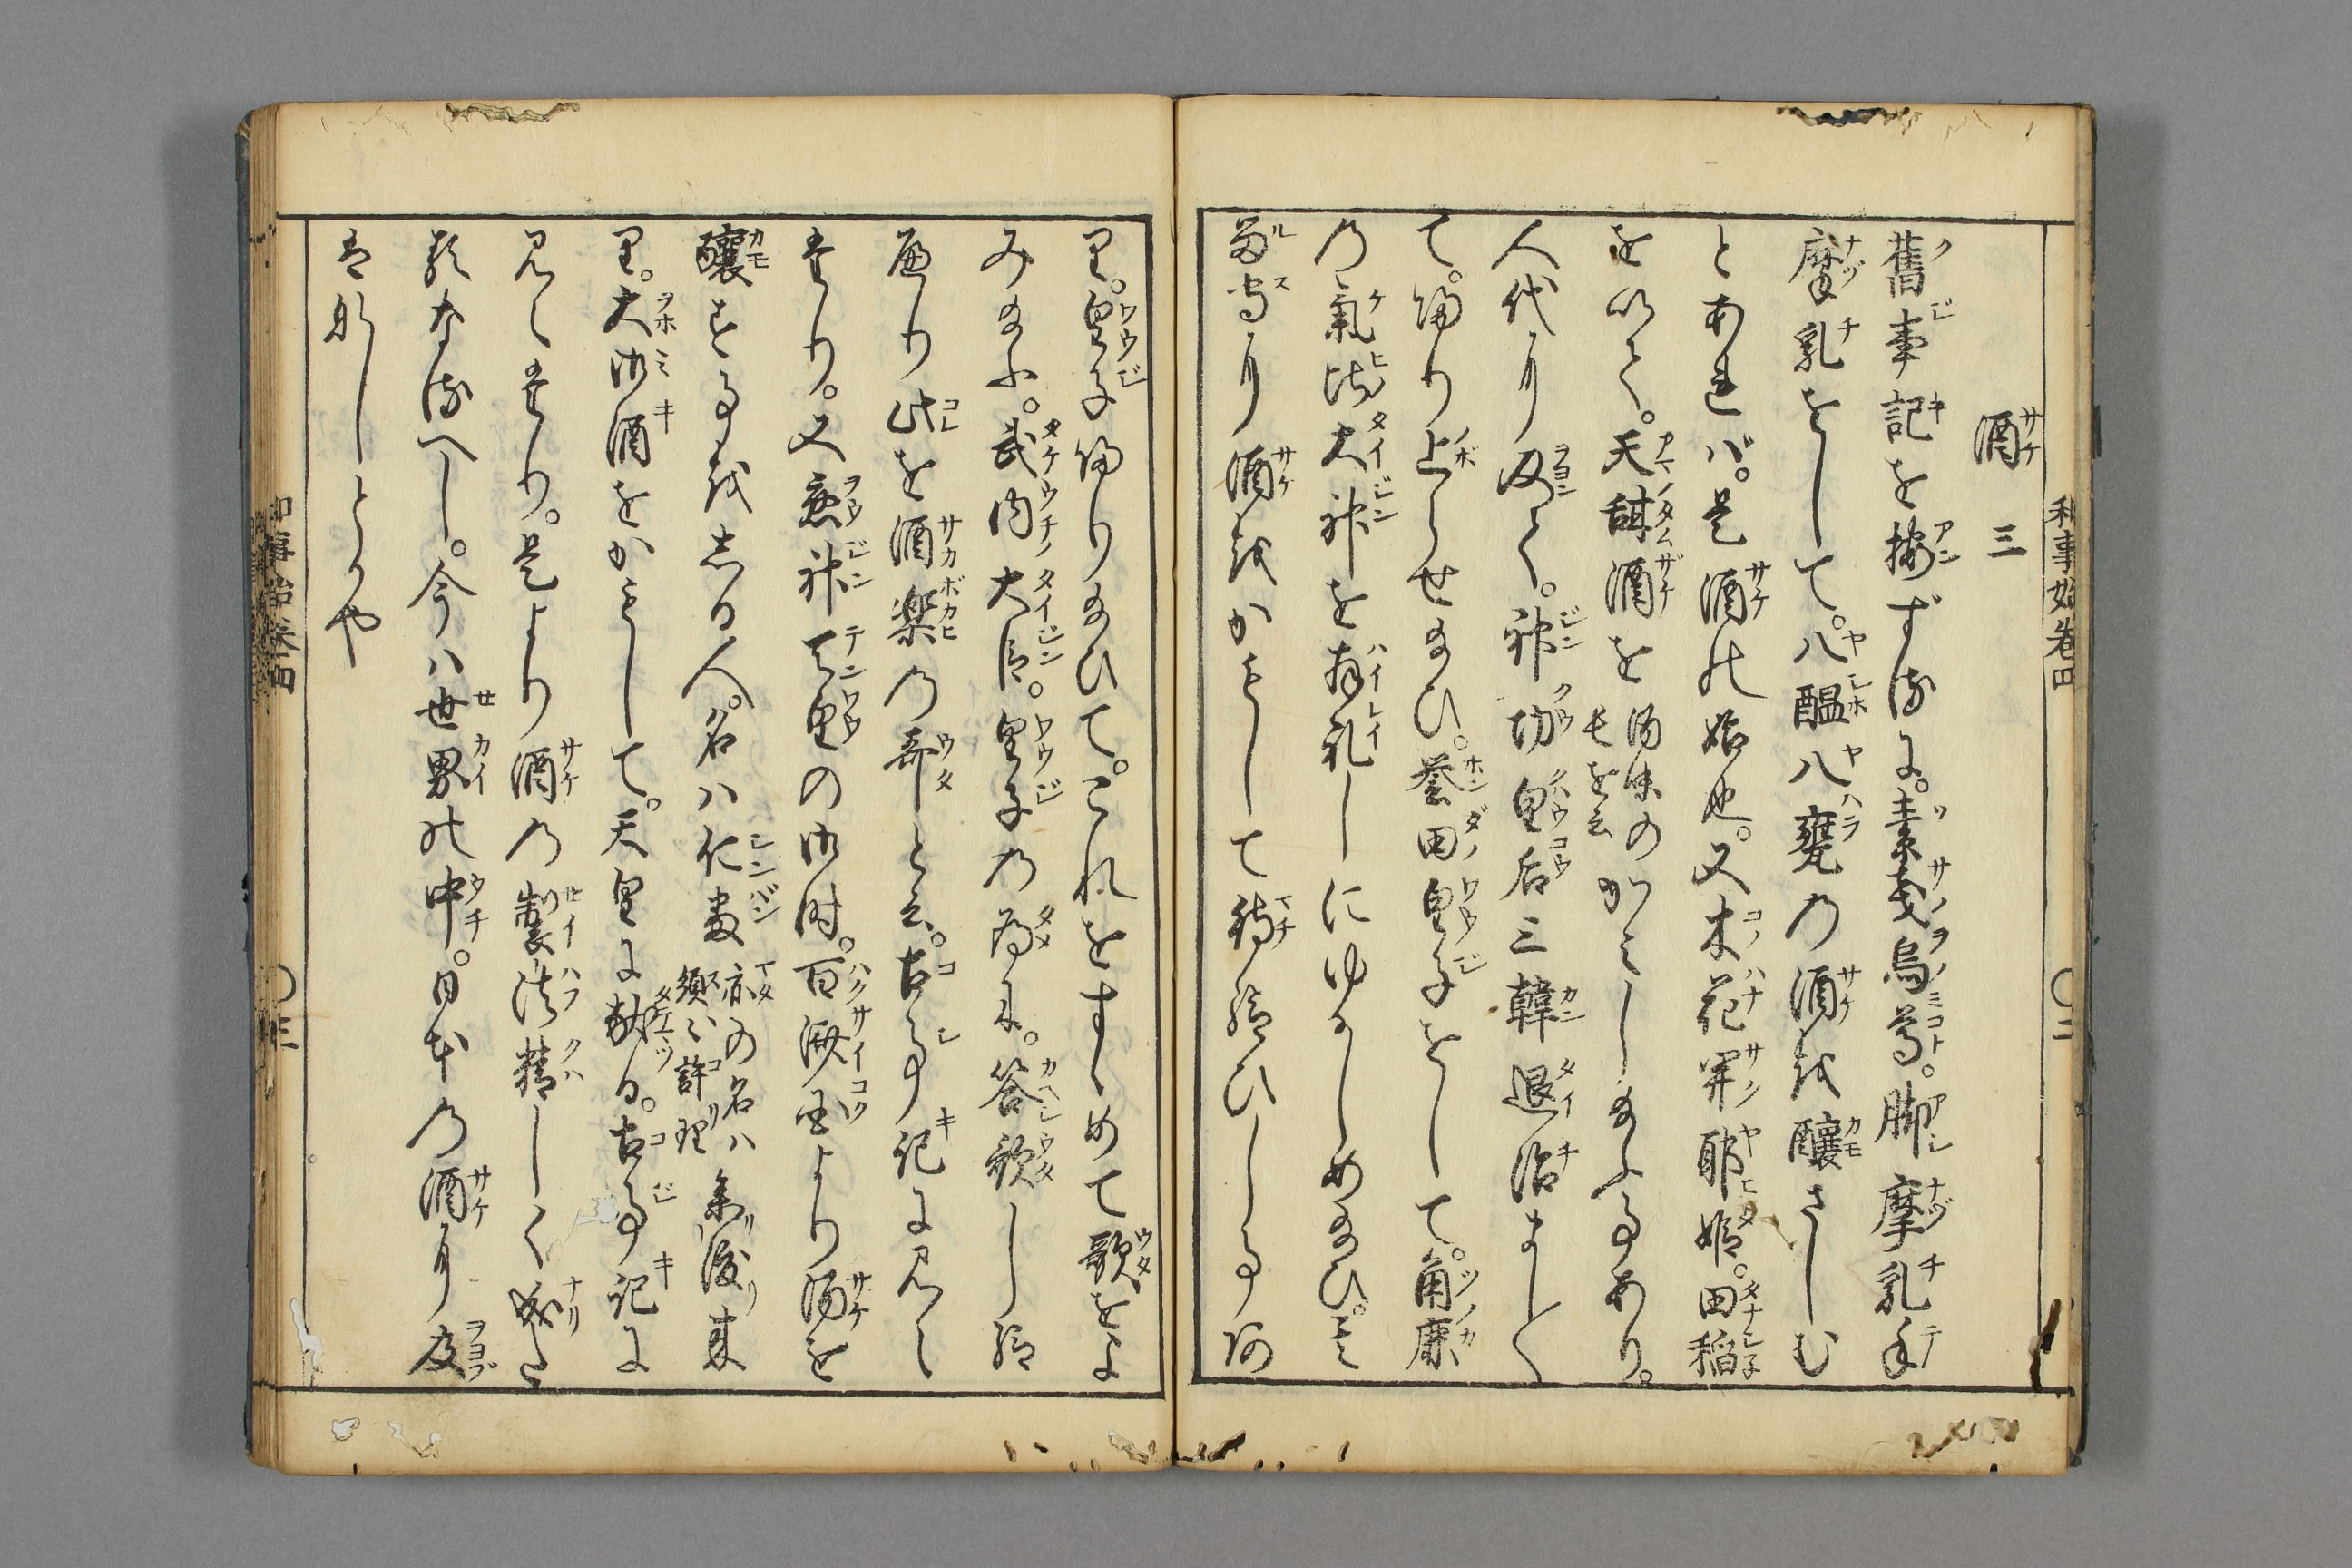 和事始巻四 〇二
酒 三
舊事記を按ずるに。素戔烏尊。脚摩乳手
摩乳をして。八醞八甕の酒を醸さしむ
とあれバ。是酒の始也。又木花開耶姫。田稲
を以て。天甜酒を
酒味のかみしもふ事あり。
人代に及て。神功皇后三韓退治まし〳〵
て。帰り上らせ給ひ。誉田皇子をして。角鹿
の氣比大神を拜礼しにゆかしめ給ひ。其
留守に酒をかもして待給ひし事阿
り。皇子帰り給ひて。これをすゝめて歌をよ
み給ふ。武内大臣。皇子の為に。答歌し給
へり此を酒楽の哥と云。古事記に見え
たり。又應神天皇の御時。百濟国より酒を
醸する事をしる人。名ハ仁番
亦の名ハ
須々許理
参渡来
り。大御酒をかもして。天皇に献る。古事記に
見えたり。是より酒の製法精しく成た
るなるへし。今ハ世界の中。日本の酒に及
はなしとかや
和事始巻四 〇三